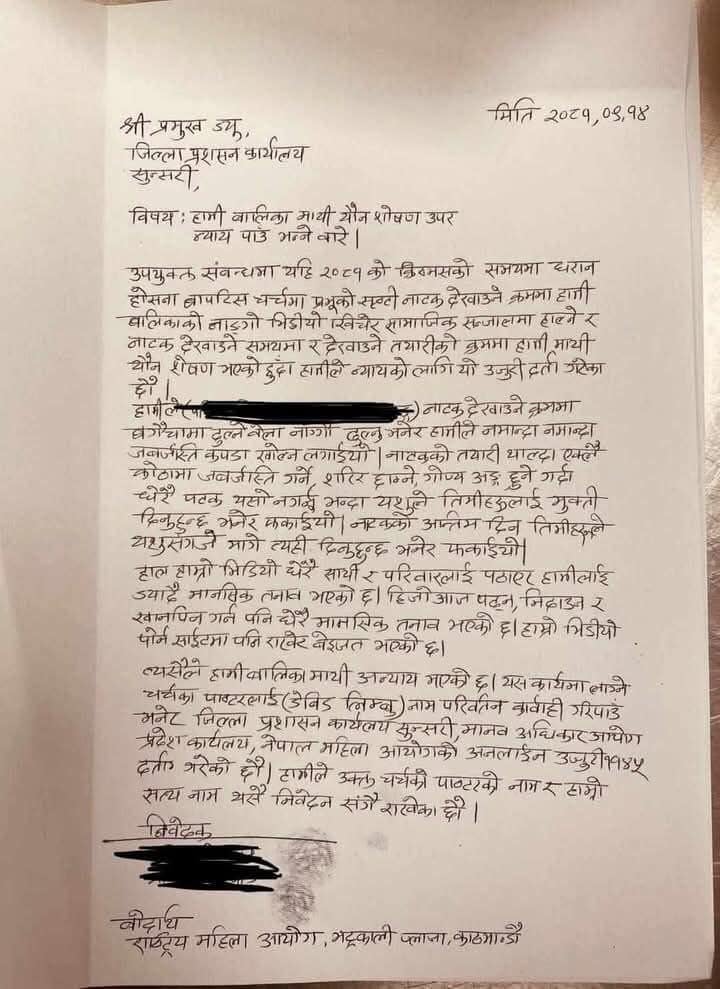 मिति २०८१,०९,१४
श्री प्रमुख ज्यू,
जिल्ला प्रशासन कार्यालय
सुन्सरी,
विषय: हामी बालिका माथी यौन शोषण उपर
न्याय पाउं भन्ने बारे |
उपयुक्त संवन्धमा यहि २०८१ को क्रिसमसको समयमा धरान
होसना बापटिस चर्चमा प्रभूको सृष्टी नाटक देखाउने क्रममा हामी
बालिकाको नाङगो भिडीयो खिचेर सामाजिक सन्जालमा हाल्ने र
नाटक देखाउने समयमा र देखाउने तयारीको क्रममा हामी माथी
यौन शेषण भएको हुदाँ हामीले न्यायको लागि यो उजुरी दर्ता गरेका
छौं |
हामीले ) नाटक देखाउने क्रममा
बगैचामा डुल्ने बेला नाग्गी डुल्नु भनेर हामीले नमान्दा नमान्दा
जवर्जस्ति कपडा खोल्न लगाईयो | नाटकको तयारी थाल्दा एक्लै
कोठामा जवर्जास्ति गर्ने, शरिर छान्ने, गोप्य अङ्ग छुने गर्दा
धेरै पटक यसो नगर्नु भन्दा यशुले तिमीहरुलाई मुक्ती
दिनुहुन्छ भनेर फकाईयो | नाटकको अन्तिम दिन तिमीहरुले
यशुसंग जे मागे त्यही दिनुहुन्छ भनेर फकाईयो |
हाल हाम्रो भिडियो धेरै साथी र परिवारलाई पठाएर हामीलाई
ज्यादै मानसिक तनाव भएको छ | हिजोआज पढ्न, निदाउन र
खानपिन गर्न पनि धेरै मानसिक तनाव भएको छ | हाम्रो भिडीयो
पोर्न साईटमा पनि राखेर बेइजत भएको छ |
त्यसैले हामी बालिका माथी अन्याय भएको छ | यस कार्यमा लाग्ने
चर्चका पाष्टरलाई (डेबिड लिम्बु) नाम परिवर्तन कार्वाही गरिपाउं
भनेर जिल्ला प्रशासन कार्यलय सुन्सरी, मानव अधिकार आयोग
प्रदेश कार्यलय, नेपाल महिला आयोगको अनलाईन उजुरी ११४५
दर्ता गरेको छौं | हामीले उक्त चर्चको पाष्टरको नाम र हाम्रो
सत्य नाम यसै निवेदन संगै राखेका छौं |
निवेदक
बोदार्थ
राष्ट्रिय महिला आयोग, भद्रकाली प्लाजा, काठमाण्डौ